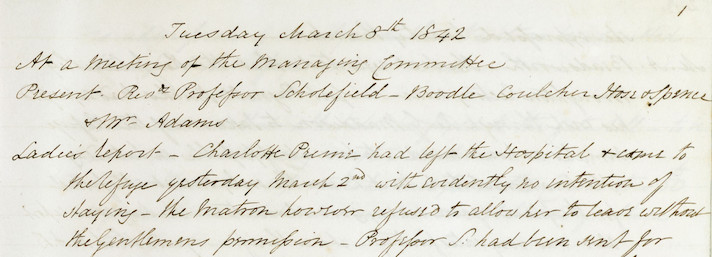 1
Tuesday March 8th 1842
At a Meeting of the Managing Committee
Present Revds Professor Scholefield - Boodle Coulcher Hose & Spence
& Mr Adams
Ladies report - Charlotte had left the Hospital & came to
the Refuge yesterday March 2nd with evidently no intention of
staying - the Matron however refused to allow her to leave without
the Gentlemens permission - Professor S. had been sent for